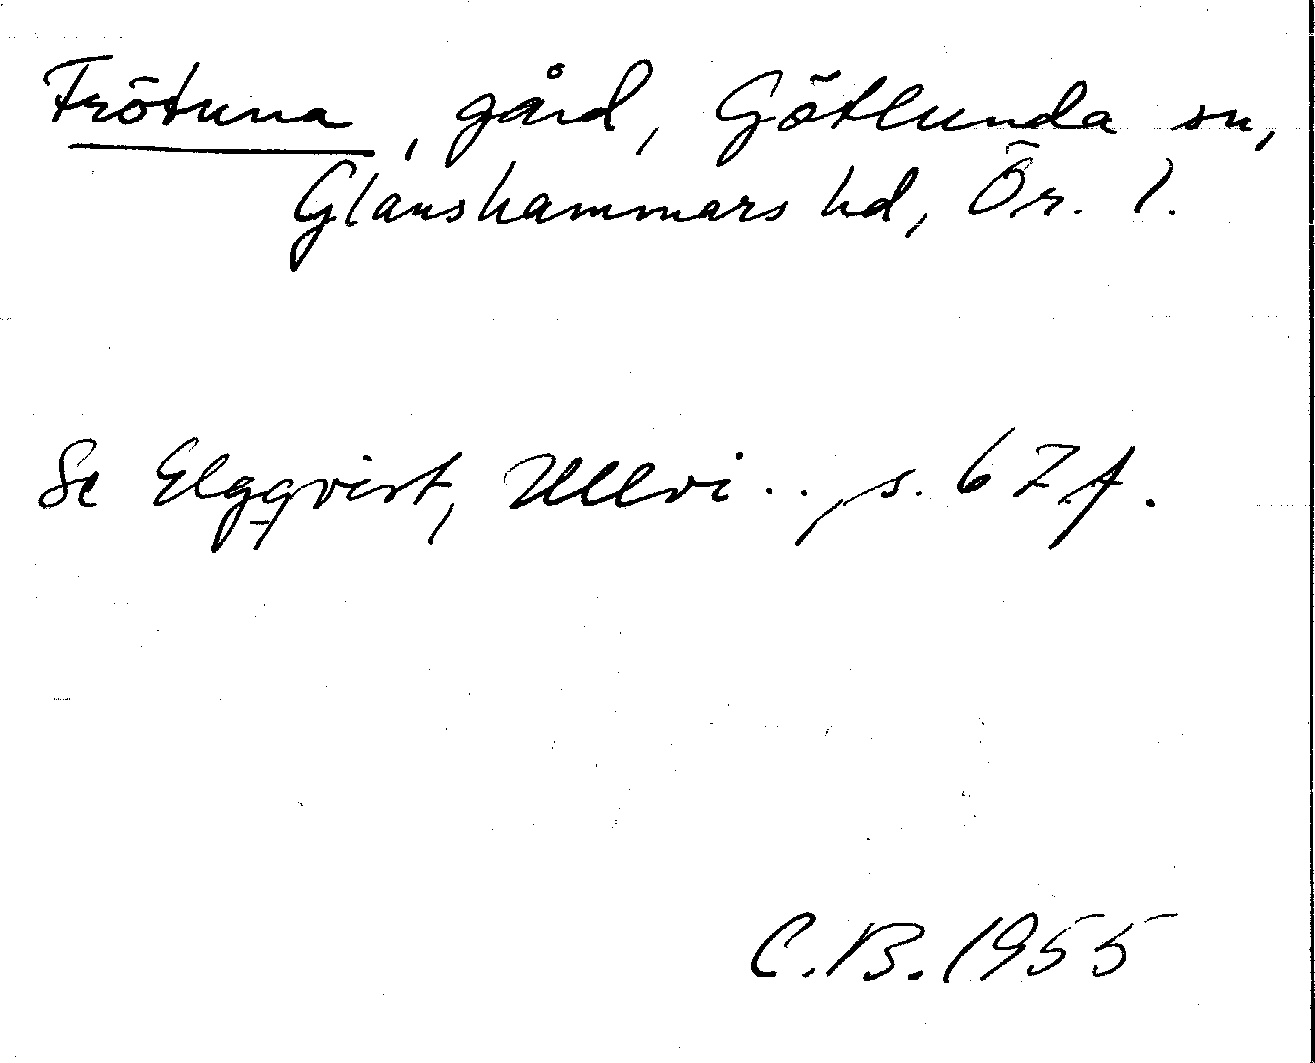 Frötuna, gård, Götlunda sn,
Glanshammars hd, Ör. l.
Se Elgqvist, Ullvi.., s. 67f.
C.B. 1955